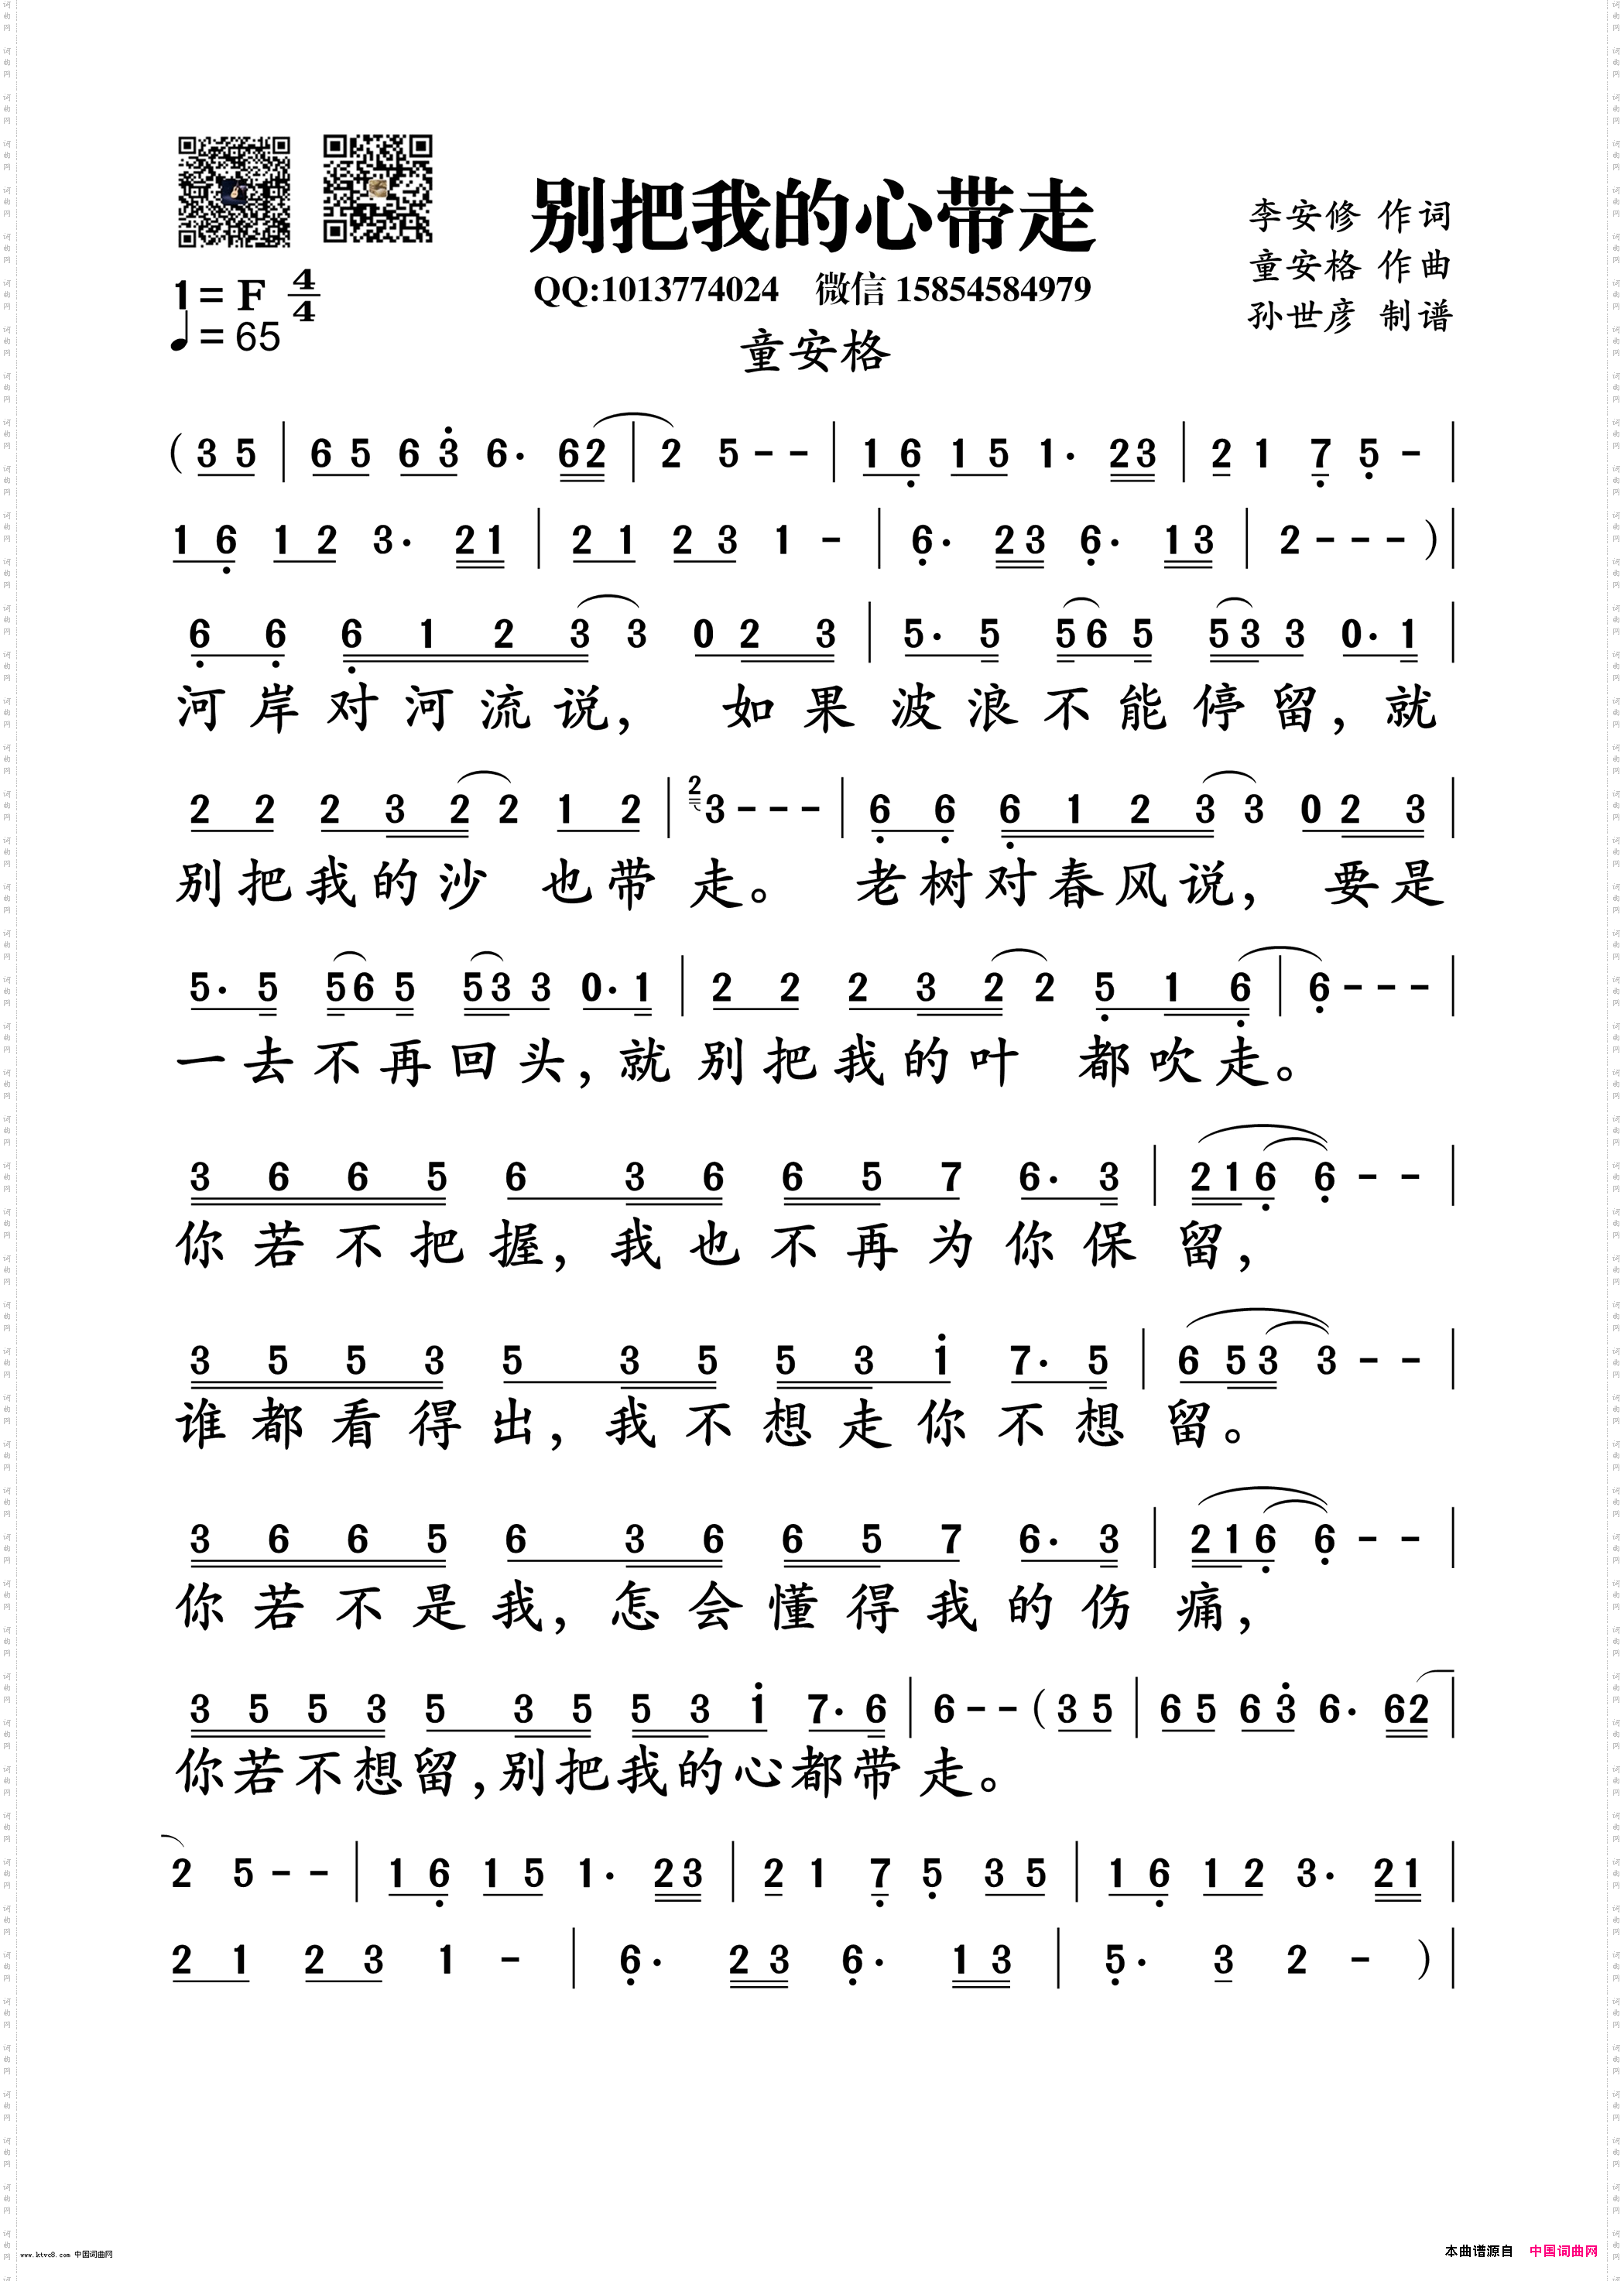 别把我的心带走
QQ:1013774024 微信 15854584979
童安格
李安修 作词
童安格 作曲
孙世彦 制谱
1= F 4/4
♩= 65
( 3 5 | 6 5 6 3̇ 6· 6 2 | 2 5 - - | 1 6̣ 1 5 1· 2 3 | 2 1 7̣ 5̣ - |
1 6̣ 1 2 3· 2 1 | 2 1 2 3 1 - | 6̣· 2 3 6̣· 1 3 | 2 - - - ) |
6̣ 6̣ 6̣ 1 2 3 3 0 2 3 | 5· 5 5 6 5 5 3 3 0· 1 |
河岸对河流说, 如果波浪不能停留,就
2 2 2 3 2 2 1 2 | 2 3 - - - | 6̣ 6̣ 6̣ 1 2 3 3 0 2 3 |
别把我的沙 也带 走。 老树对春风说, 要是
5· 5 5 6 5 5 3 3 0· 1 | 2 2 2 3 2 2 5̣ 1 6̣ | 6̣ - - - |
一去不再回头,就别把我的叶 都吹走。
3 6 6 5 6 3 6 6 5 7 6· 3 | 2 1 6̣ 6̣ - - |
你若不把握,我也不再为你保留,
3 5 5 3 5 3 5 5 3 1̇ 7· 5 | 6 5 3 3 - - |
谁都看得出,我不想走你不想留。
3 6 6 5 6 3 6 6 5 7 6· 3 | 2 1 6̣ 6̣ - - |
你若不是我,怎会懂得我的伤痛,
3 5 5 3 5 3 5 5 3 1̇ 7· 6 | 6 - - ( 3 5 | 6 5 6 3̇ 6· 6 2 |
你若不想留,别把我的心都带走。
2 5 - - | 1 6̣ 1 5 1· 2 3 | 2 1 7̣ 5̣ 3 5 | 1 6̣ 1 2 3· 2 1 |
2 1 2 3 1 - | 6̣· 2 3 6̣· 1 3 | 5̣· 3 2 - ) |
www.ktvc8.com 中国词曲网
本曲谱源自 中国词曲网